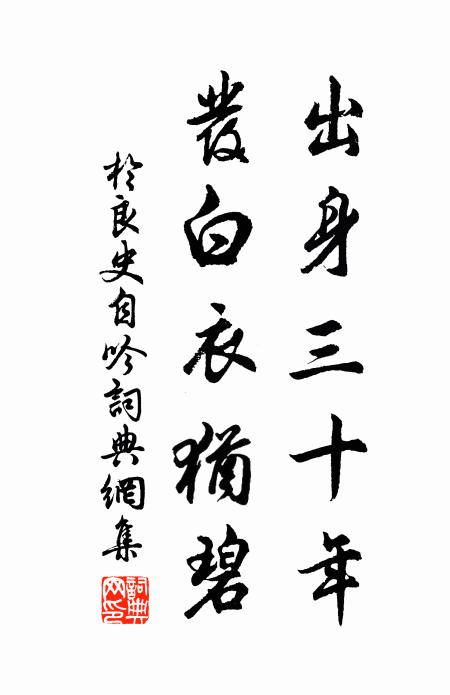 出身三十年
發白衣猶碧
於良史自吟詞典網集
詞典
網印